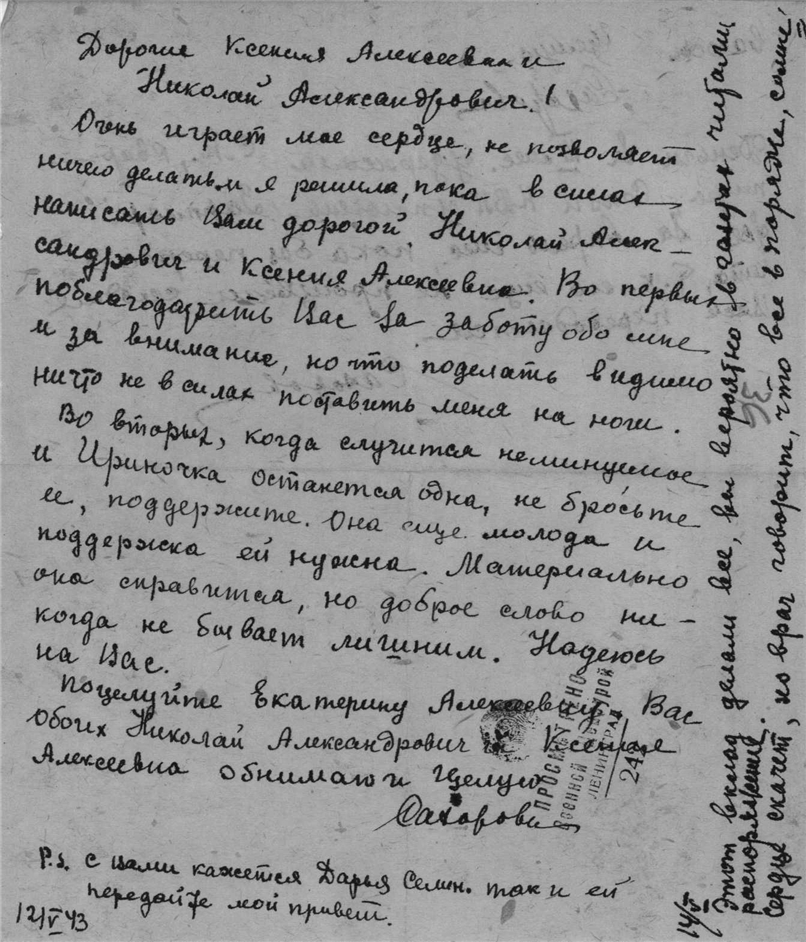 Дорогие Ксения Алексеевна и
Николай Александрович!
Очень играет мое сердце, не позволяет
ничего делать и я решила, пока в силах
написать Вам дорогой Николай Алек-
сандрович и Ксения Алексеевна. Во первых
поблагодарить Вас за заботу обо мне
и за внимание, но что поделать видимо
ничто не в силах поставить меня на ноги.
Во вторых, когда случится неминуемое
и Ириночка останется одна, не бросьте
ее, поддержите. Она еще молода и
поддержка ей нужна. Материально
она справится, но доброе слово ни-
когда не бывает лишним. Надеюсь
на Вас.
Поцелуйте Екатерину Алексеевну, Вас
обоих Николай Александрович и Ксения
Алексеевна обнимаю и целую
P.s. с вами кажется Дарья Семен. так и ей
передайте мой привет.
12/V 43
ПРОСМОТРЕНО
Военной Цензурой
ЛЕНИНГРАД
24
36
14/V
Этот вклад делали все, вы вероятно в газетах читали
распоряжение.
Сердце скачет, но врач говорит, что все в порядке,